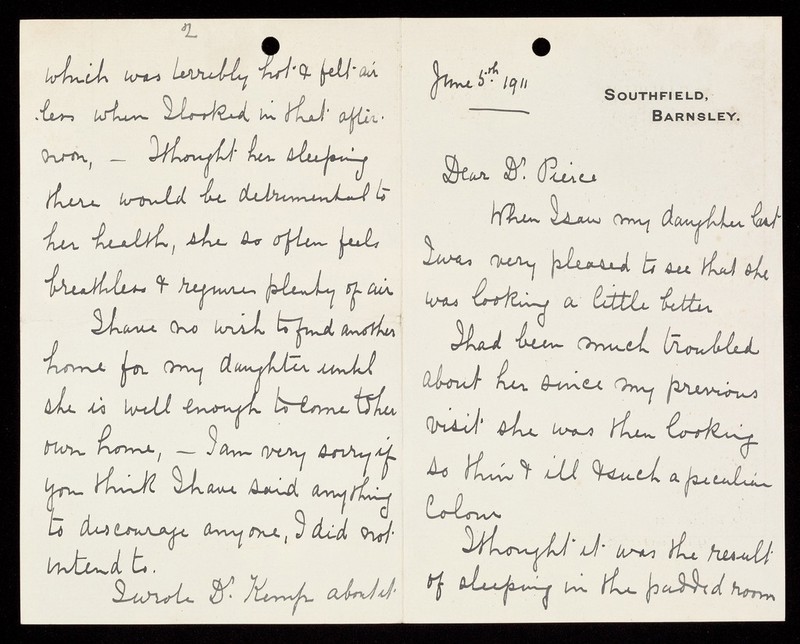 June 5th. 1911
SOUTHFIELD,
BARNSLEY.
Dear Dr. Pierce
When I saw my daughter last
I was very pleased to see that she
was looking a little better
I had been much troubled
about her since my previous
visit she was then looking
so thin & ill & such a peculiar
Colour
I thought it was the result
of sleeping in the padded room
2
which was terribly hot & felt air
less when I looked in that after-
noon, — I thought her sleeping
there would be detrimental to
her health, she so often feels
breathless & requires plenty of air
I have no wish to find another
home for my daughter until
she is well enough to come to her
own home, — I am very sorry if
you think I have said anything
to discourage anyone, I did not
intend to.
I wrote Dr. Kemp about it